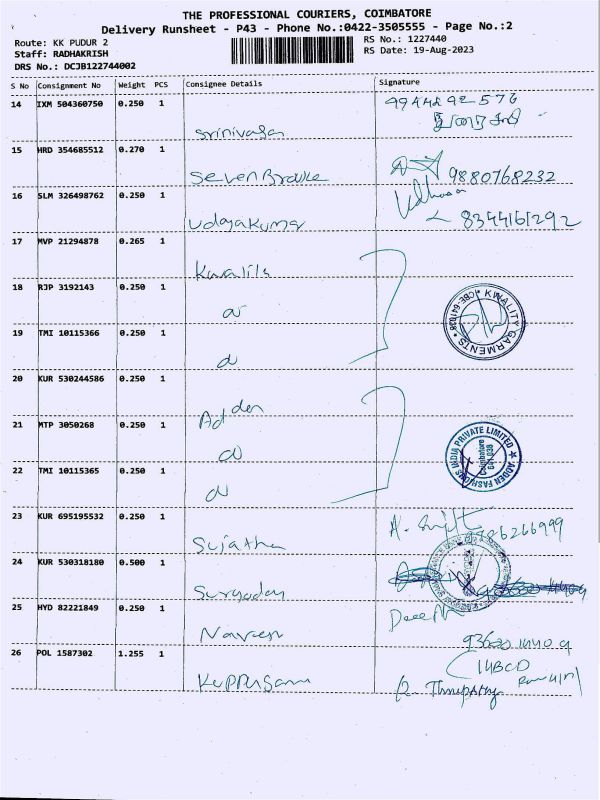 THE PROFESSIONAL COURIERS, COIMBATORE
Delivery Runsheet - P43 - Phone No.:0422-3505555 - Page No.:2
Route: KK PUDUR 2
Staff: RADHAKRISH
DRS No.: DCJB122744002
RS No.: 1227440
RS Date: 19-Aug-2023
S No Consignment No Weight PCS Consignee Details Signature
14 IXM 504360750 0.250 1 Srinivasan 9944292576
15 HRD 354685512 0.270 1 9880768232
16 SLM 326498762 0.250 1 Udayakumar 8344161292
17 MVP 21294878 0.265 1
18 RJP 3192143 0.250 1
KWALITY GARMENTS * CBE-641038 *
19 TMI 10115366 0.250 1
20 KUR 530244586 0.250 1 Adden
21 MTP 3050268 0.250 1
ADDEN FASHIONS INDIA PRIVATE LIMITED
Coimbatore
641 038
22 TMI 10115365 0.250 1
23 KUR 695195532 0.250 1 Sujatha
24 KUR 530318180 0.500 1
25 HYD 82221849 0.250 1 Naveen
26 POL 1587302 1.255 1 Kuppusami